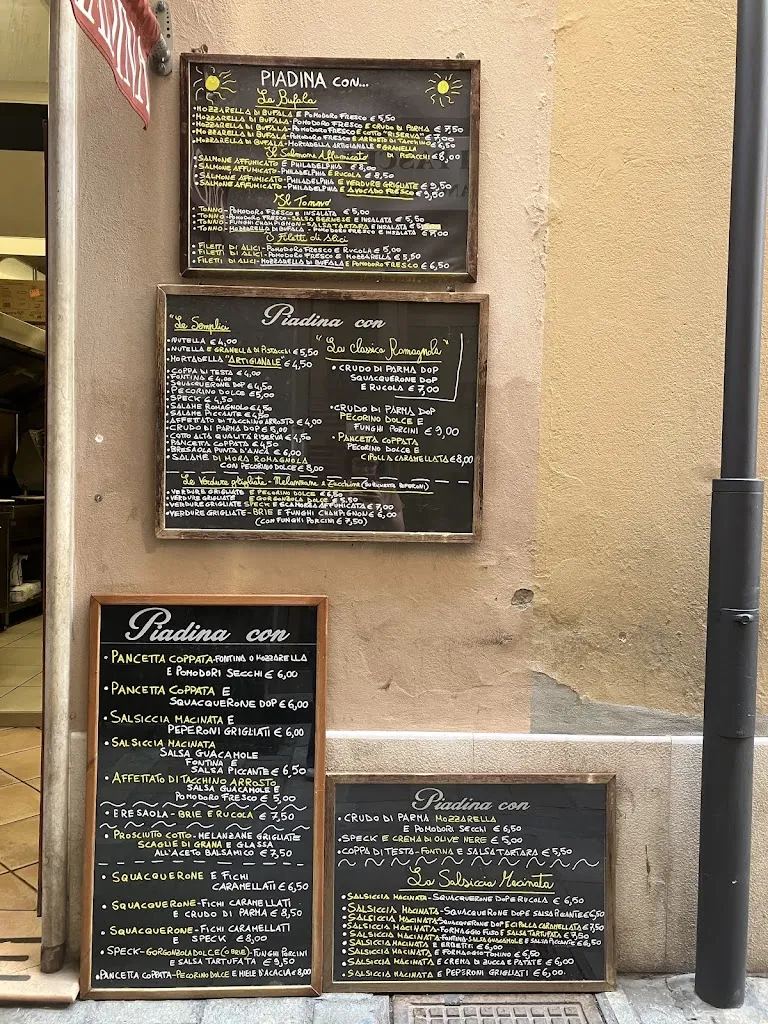 ADINA
PIADINA CON...
La Bufala
• MOZZARELLA DI BUFALA E POMODORO FRESCO € 5,50
• MOZZARELLA DI BUFALA-POMODORO FRESCO E CRUDO DI PARMA € 7,50
• MOZZARELLA DI BUFALA-POMODORO FRESCO E COTTO "RISERVA" € 7,00
• MOZZARELLA DI BUFALA-POMODORO FRESCO E ARROSTO DI TACCHINO € 6,50
• MOZZARELLA DI BUFALA-MORTADELLA ARTIGIANALE E GRANELLA
DI PISTACCHI € 8,00
Il Salmone Affumicato
• SALMONE AFFUMICATO E PHILADELPHIA € 8,00
• SALMONE AFFUMICATO-PHILADELPHIA E RUCOLA € 8,50
• SALMONE AFFUMICATO-PHILADELPHIA E VERDURE GRIGLIATE € 9,50
• SALMONE AFFUMICATO-PHILADELPHIA E AVOCADO FRESCO € 9,50
Il Tonno
• TONNO-POMODORO FRESCO E INSALATA € 5,00
• TONNO-POMODORO FRESCO-SALSA BERNESE E INSALATA € 5,50
• TONNO-FUNGHI CHAMPIGNON-SALSA TARTARA E INSALATA € 5
• TONNO-MOZZARELLA DI BUFALA-POMODORO FRESCO E INSALATA
I Filetti di Alici
• FILETTI DI ALICI-POMODORO FRESCO E RUCOLA € 5,00
• FILETTI DI ALICI-POMODORO FRESCO E MOZZARELLA € 5,50
• FILETTI DI ALICI-MOZZARELLA DI BUFALA E POMODORO FRESCO € 6,50
Piadina con
"Le Semplici
• NUTELLA € 4,00
• NUTELLA E GRANELLA DI PISTACCHI € 5,50
• MORTADELLA "ARTIGIANALE" € 4,50
COPPA DI TESTA € 4,00
FONTINA € 4,00
SQUACQUERONE DOP € 4,50
PECORINO DOLCE € 5,00
SPECK € 4,50
SALAME ROMAGNOLO € 4,50
SALAME PICCANTE € 4,50
AFFETTATO DI TACCHINO ARROSTO € 4,00
CRUDO DI PARMA DOP € 5,00
COTTO ALTA QUALITÀ RISERVA € 4,50
PANCETTA COPPATA € 4,50
BRESAOLA PUNTA D'ANCA € 6,00
SALAME DI MORA ROMAGNOLA
CON PECORINO DOLCE € 8,00
"La classica Romagnola"
• CRUDO DI PARMA DOP
SQUACQUERONE DOP
E RUCOLA € 7,00
• CRUDO DI PARMA DOP
PECORINO DOLCE E
FUNGHI PORCINI € 9,00
• PANCETTA COPPATA
PECORINO DOLCE E
CIPOLLA CARAMELLATA € 8,00
Le Verdure grigliate - Melanzane e Zucchine (SU RICHIESTA PEPERONI)
• VERDURE GRIGLIATE E PECORINO DOLCE € 6,50
• VERDURE GRIGLIATE E GORGONZOLA DOLCE € 5,50
• VERDURE GRIGLIATE SPECK E SCAMORZA AFFUMICATA € 7,00
• VERDURE GRIGLIATE-BRIE E FUNGHI CHAMPIGNON € 6,00
(CON FUNGHI PORCINI € 7,50)
Piadina con
• PANCETTA COPPATA-FONTINA O MOZZARELLA
E POMODORI SECCHI € 6,00
• PANCETTA COPPATA E
SQUACQUERONE DOP € 6,00
• SALSICCIA MACINATA E
PEPERONI GRIGLIATI € 6,00
• SALSICCIA MACINATA
SALSA GUACAMOLE
FONTINA E
SALSA PICCANTE € 6,50
• AFFETTATO DI TACCHINO ARROSTO
SALSA GUACAMOLE E
POMODORO FRESCO € 5,00
• BRESAOLA-BRIE E RUCOLA € 7,50
• PROSCIUTTO COTTO-MELANZANE GRIGLIATE
SCAGLIE DI GRANA E GLASSA
ALL'ACETO BALSAMICO € 7,50
• SQUACQUERONE E FICHI
CARAMELLATI € 6,50
• SQUACQUERONE-FICHI CARAMELLATI
E CRUDO DI PARMA € 8,50
• SQUACQUERONE-FICHI CARAMELLATI
E SPECK € 8,00
• SPECK-GORGONZOLA DOLCE (O BRIE)-FUNGHI PORCINI
E SALSA TARTUFATA € 9,50
• PANCETTA COPPATA-PECORINO DOLCE E MIELE D'ACACIA € 8,00
Piadina con
• CRUDO DI PARMA MOZZARELLA
E POMODORI SECCHI € 6,50
• SPECK E CREMA DI OLIVE NERE € 5,00
• COPPA DI TESTA-FONTINA E SALSA TARTARA € 5,50
La Salsiccia Macinata
• SALSICCIA MACINATA-SQUACQUERONE DOP E RUCOLA € 6,50
• SALSICCIA MACINATA-SQUACQUERONE DOP E SALSA PICCANTE € 6,50
• SALSICCIA MACINATA-SQUACQUERONE DOP E CIPOLLA CARAMELLATA € 7,50
• SALSICCIA MACINATA-FORMAGGIO FUSO E SALSA TARTUFATA € 7,50
• SALSICCIA MACINATA-FONTINA-SALSA GUACAMOLE E SALSA PICCANTE € 6,50
• SALSICCIA MACINATA E ERBETTE € 6,00
• SALSICCIA MACINATA E FORMAGGIO TOMINO € 6,50
• SALSICCIA MACINATA E CREMA DI ZUCCA E PATATE € 6,00
• SALSICCIA MACINATA E PEPERONI GRIGLIATI € 6,00